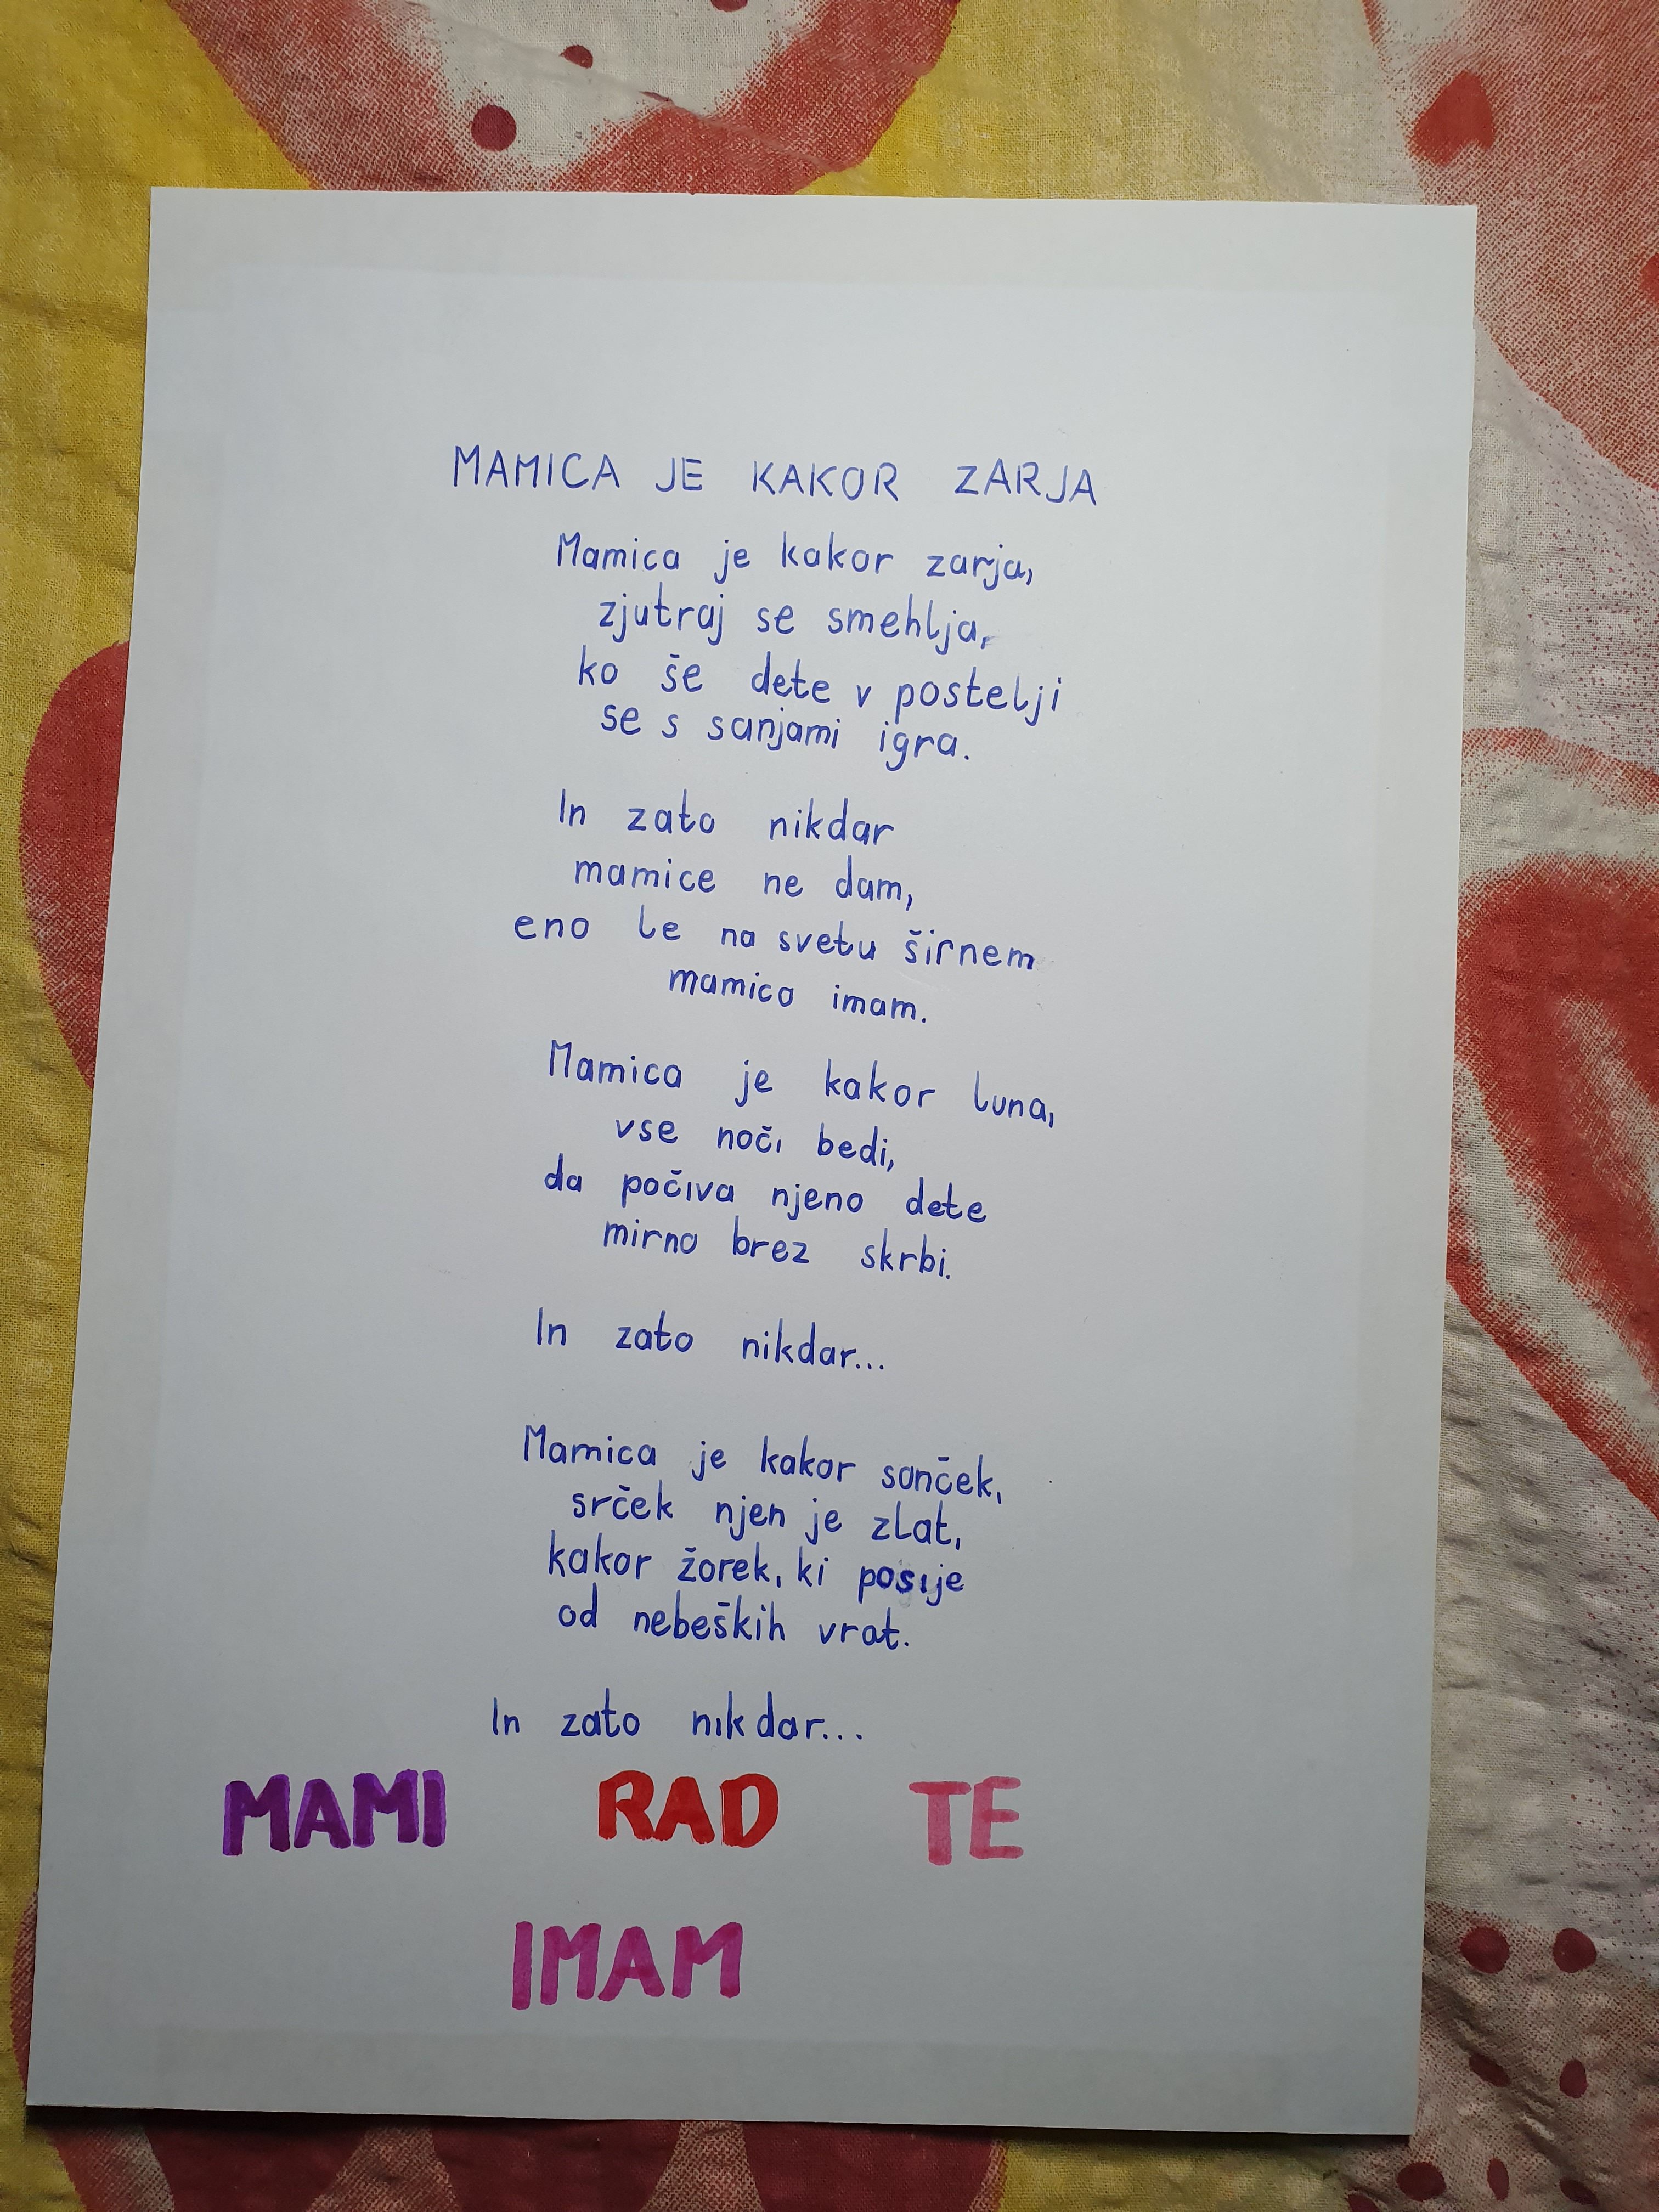 MAMICA JE KAKOR ZARJA
Mamica je kakor zarja,
zjutraj se smehlja,
ko še dete v postelji
se s sanjami igra.
In zato nikdar
mamice ne dam,
eno le na svetu širnem
mamico imam.
Mamica je kakor luna,
vse noči bedi,
da počiva njeno dete
mirno brez skrbi.
In zato nikdar...
Mamica je kakor sonček,
srček njen je zlat,
kakor žorek, ki posije
od nebeških vrat.
In zato nikdar...
MAMI RAD TE
IMAM